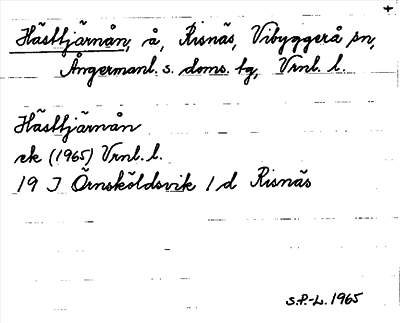 Hästtjärnån, å, Risnäs, Vibyggerå sn,
Ångermanl. s. doms. tg, Vrnl. l.
Hästtjärnån
ek (1965) Vrnl. l.
19 J Örnsköldsvik 1 d Risnäs
S.P.-L. 1965